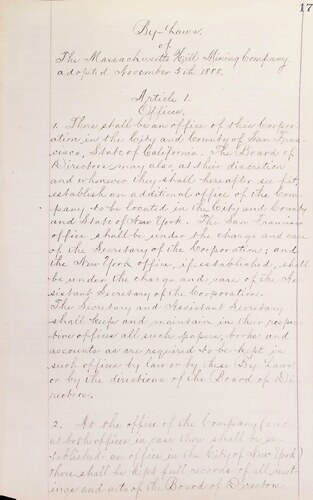 17
By-Laws.
of
The Massachusetts Hill Mining Company.
adopted November 5th 1888.
Article 1.
Offices.
1. There shall be an office of this Corpor-
ation, in the City and County of San Fran-
cisco, State of California. The Board of
Directors may also at their discretion
and whenever they shall hereafter see fit,
establish an additional office of the Com-
pany to be located in the City and County
and State of New York. The San Francisco
office shall be under the charge and care
of the Secretary of the Corporation; and
the New York office, if established, shall
be under the charge and care of the As-
sistant Secretary of the Corporation.
The Secretary and Assistant Secretary
shall keep and maintain in their respec-
tive offices all such papers, books and
accounts as are required to be kept in
such offices by law or by these By-Laws
or by the directions of the Board of Di-
rectors.
2. At the office of the Company (and
at both offices in case there shall be es-
tablished an office in the City of New York)
there shall be kept full records of all meet-
ings and acts of the Board of Directors